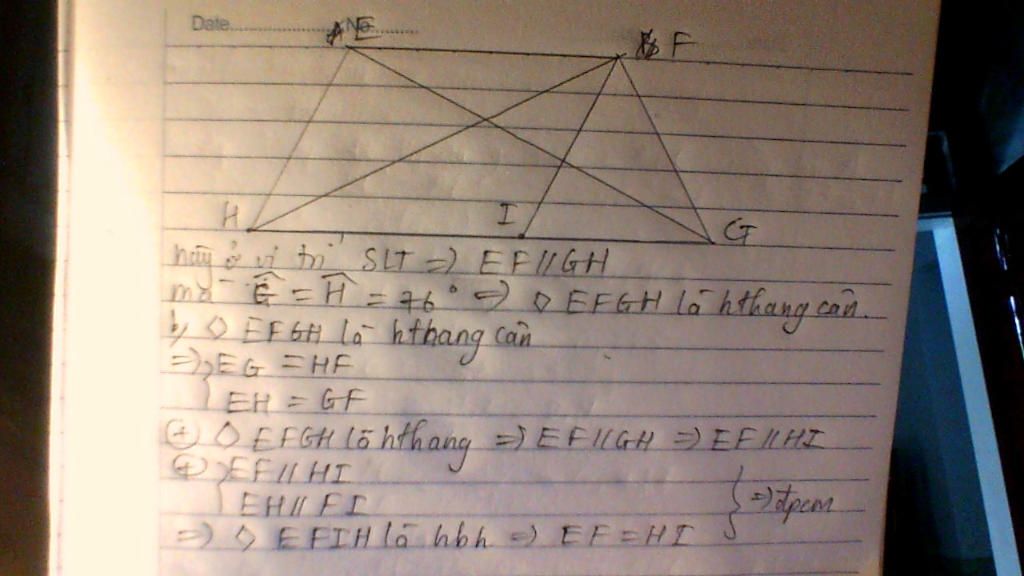 Date No
E F
H I G
này ở vị trí SLT => EF // GH
mà Ĝ = Ĥ = 76° => ◇ EFGH là hthang cân.
b, ◇ EFGH là hthang cân
=> { EG = HF
EH = GF
(+) ◇ EFGH là hthang => EF // GH => EF // HI
(+) { EF // HI
EH // FI
} => đpcm
=> ◇ EFIH là hbh => EF = HI